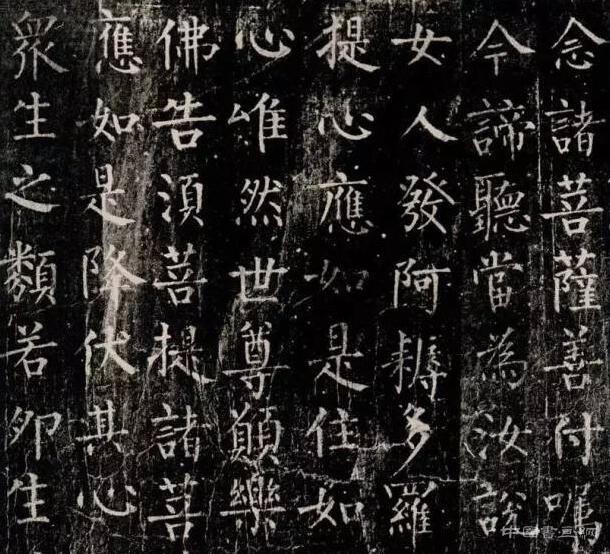 念諸菩薩善付囑
今諦聽當為汝說
女人發阿耨多羅
提心應如是住如
心唯然世尊願樂
佛告須菩提諸菩
應如是降伏其心
眾生之類若卵生
中国書画網